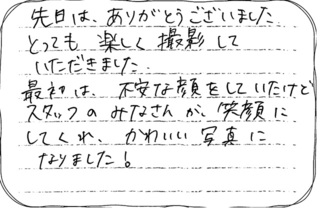 先日は、ありがとうございました
とっても 楽しく 撮影して
いただきました.
最初は、不安な顔をしていたけど
スタッフのみなさんが、笑顔に
してくれ、かわいい写真に
なりました!